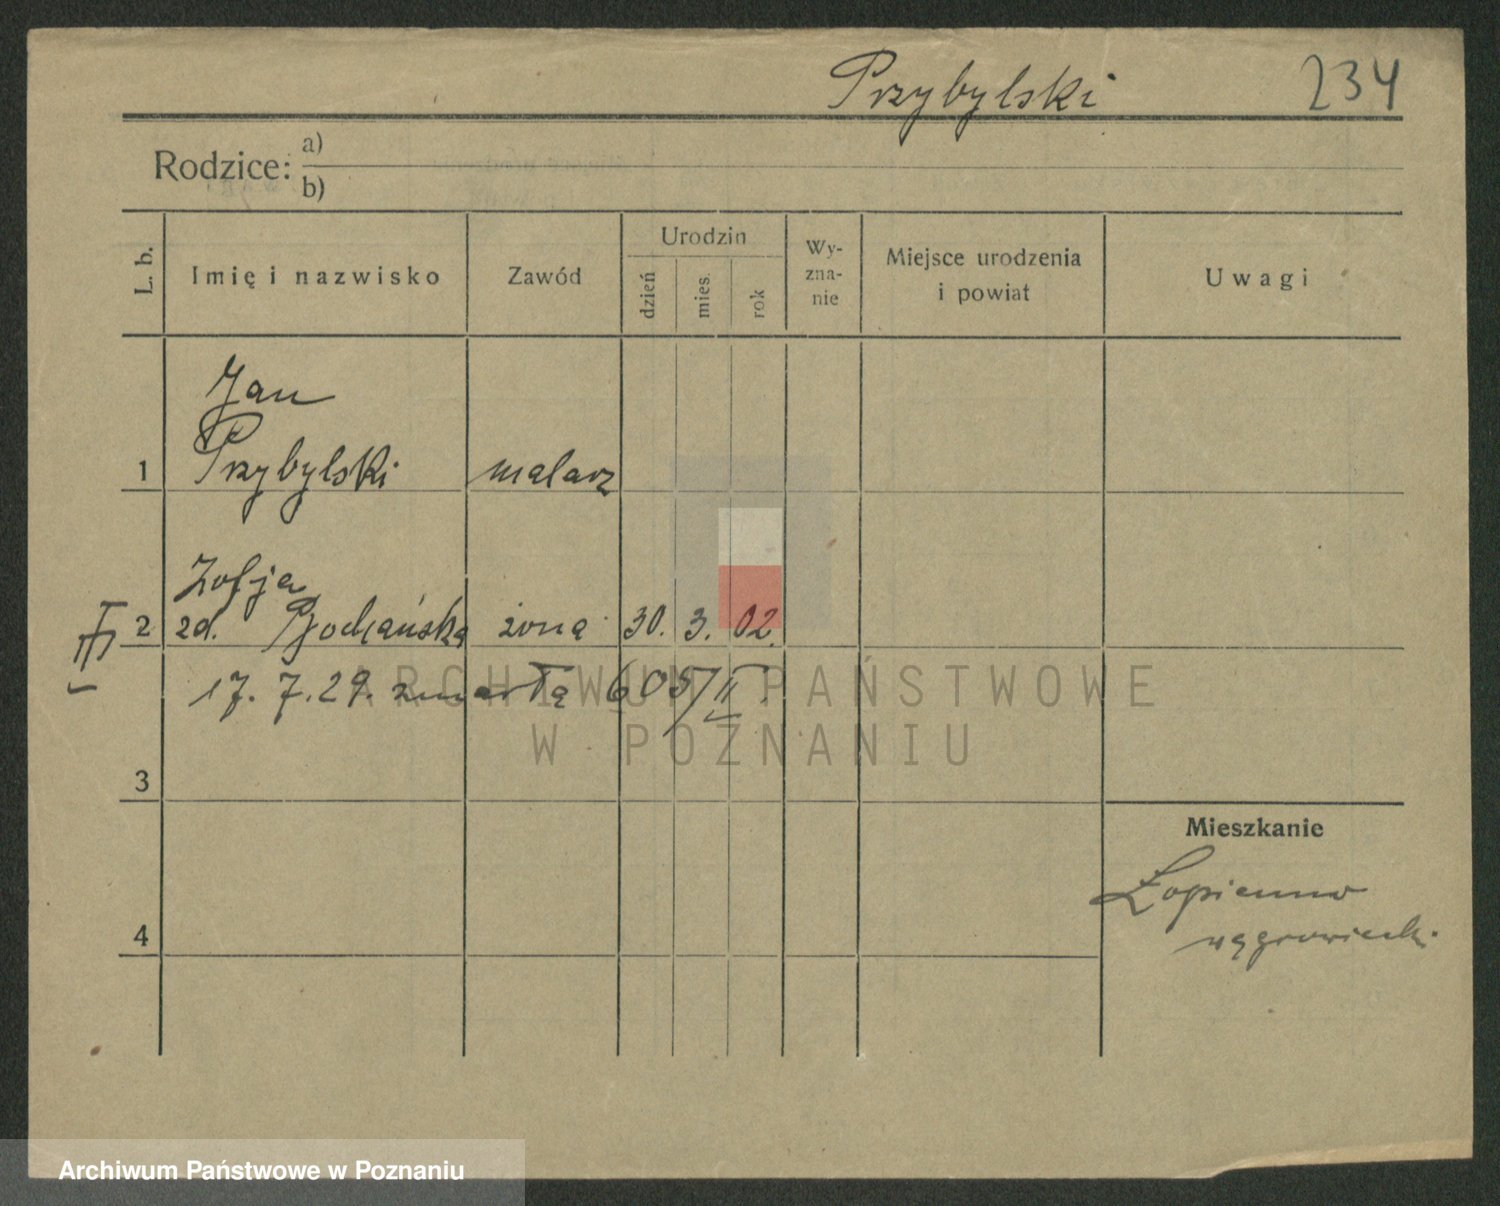 Przybylski 234
Rodzice: a)
b)
L. b. Imię i nazwisko Zawód Urodzin dzień mies. rok Wy-zna-nie Miejsce urodzenia i powiat Uwagi
Jan
1 Przybylski malarz
Zofja
2 zd. żona 30. 3. 02.
17. 7. 29. zmarła 605/II
ARCHIWUM PAŃSTWOWE
W POZNANIU
3
Mieszkanie
Łopienno
4 wągrowieck.
Archiwum Państwowe w Poznaniu